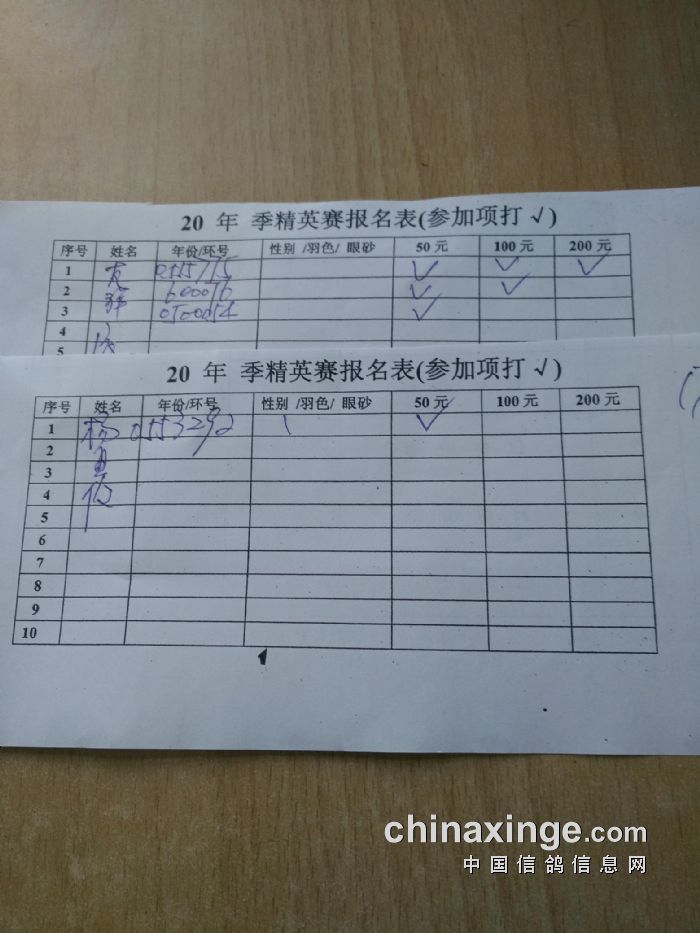 20 年 季精英赛报名表(参加项打 √)
序号 姓名 年份/环号 性别 /羽色/ 眼砂 50 元 100 元 200 元
1 ✓ ✓ ✓
2 600076 ✓ ✓
3 0500054 ✓
4
5
20 年 季精英赛报名表(参加项打 √)
序号 姓名 年份/环号 性别 /羽色/ 眼砂 50 元 100 元 200 元
1 杨 0553292 ✓
2
3
4
5
6
7
8
9
10
chinaxinge.com
中国信鸽信息网